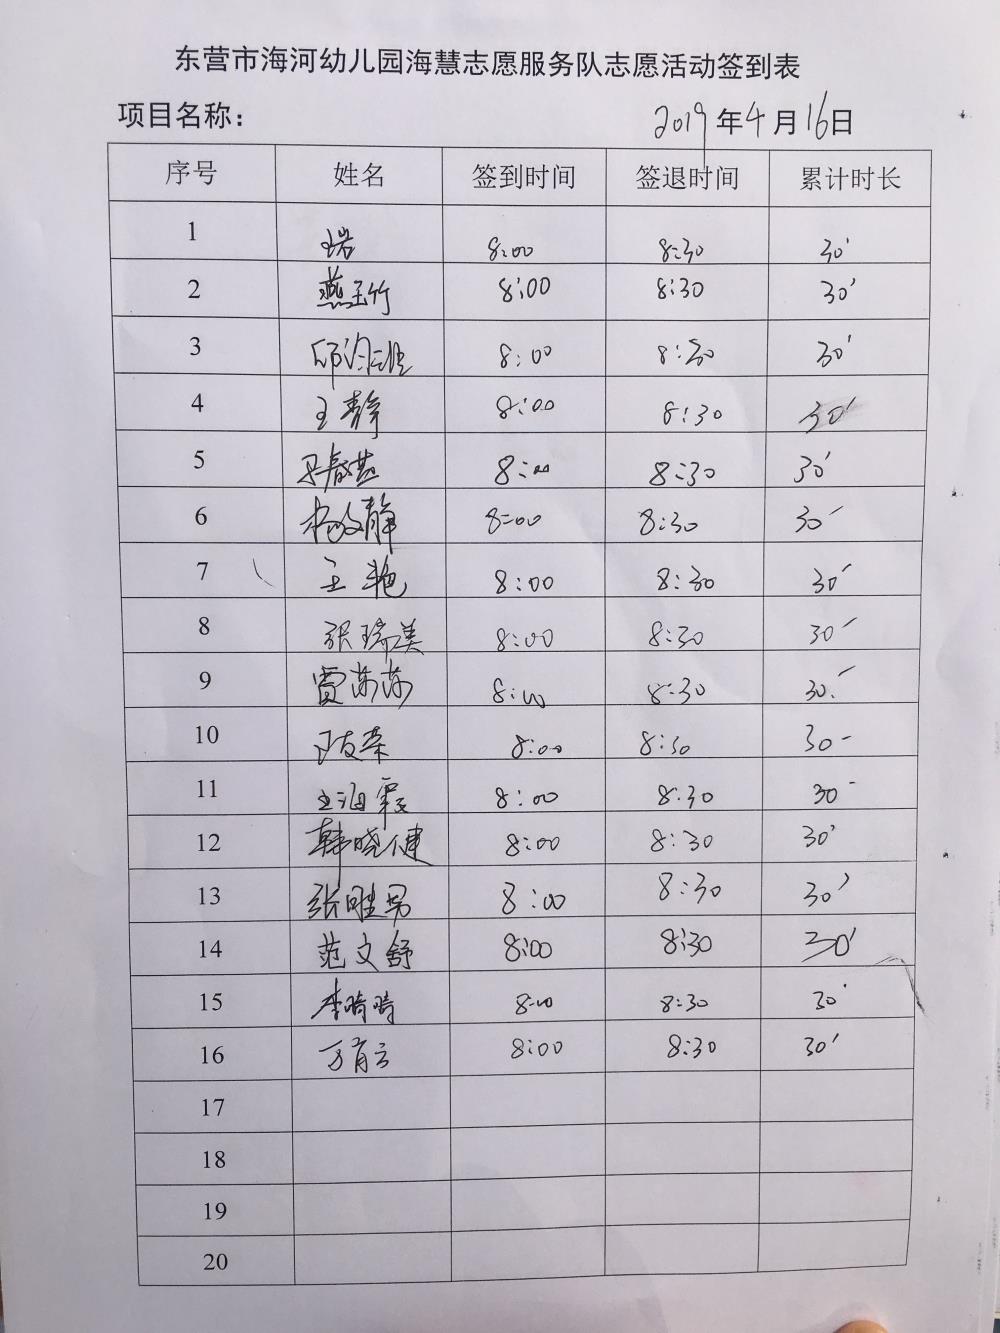 东营市海河幼儿园海慧志愿服务队志愿活动签到表
项目名称： 2019年4月16日
序号 姓名 签到时间 签退时间 累计时长
1 8:00 8:30 30'
2 燕玉竹 8:00 8:30 30'
3 8:00 8:30 30'
4 王静 8:00 8:30 30'
5 8:00 8:30 30'
6 杨文静 8:00 8:30 30'
7 王艳 8:00 8:30 30'
8 张瑞美 8:00 8:30 30'
9 贾莎莎 8:00 8:30 30'
10 8:00 8:30 30'
11 王海霞 8:00 8:30 30'
12 韩晓健 8:00 8:30 30'
13 张胜男 8:00 8:30 30'
14 范文舒 8:00 8:30 30'
15 李晴晴 8:00 8:30 30'
16 万育云 8:00 8:30 30'
17
18
19
20